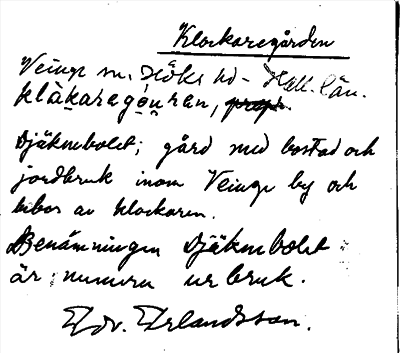 Klockaregården
Veinge sn. Höks hd - Hall. län.
klàkaregɷuren,
Djäknebolet; gård med bostad och
jordbruk inom Veinge by och
bebos av klockaren.
Benämningen Djäknebolet
är numera ur bruk.
Edv. Erlandsson.